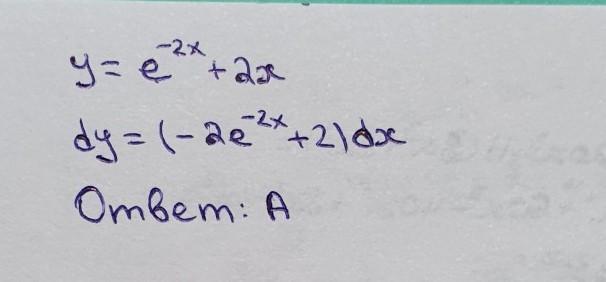 y = e^{-2x} + 2x
dy = (-2e^{-2x} + 2)dx
Ответ: А